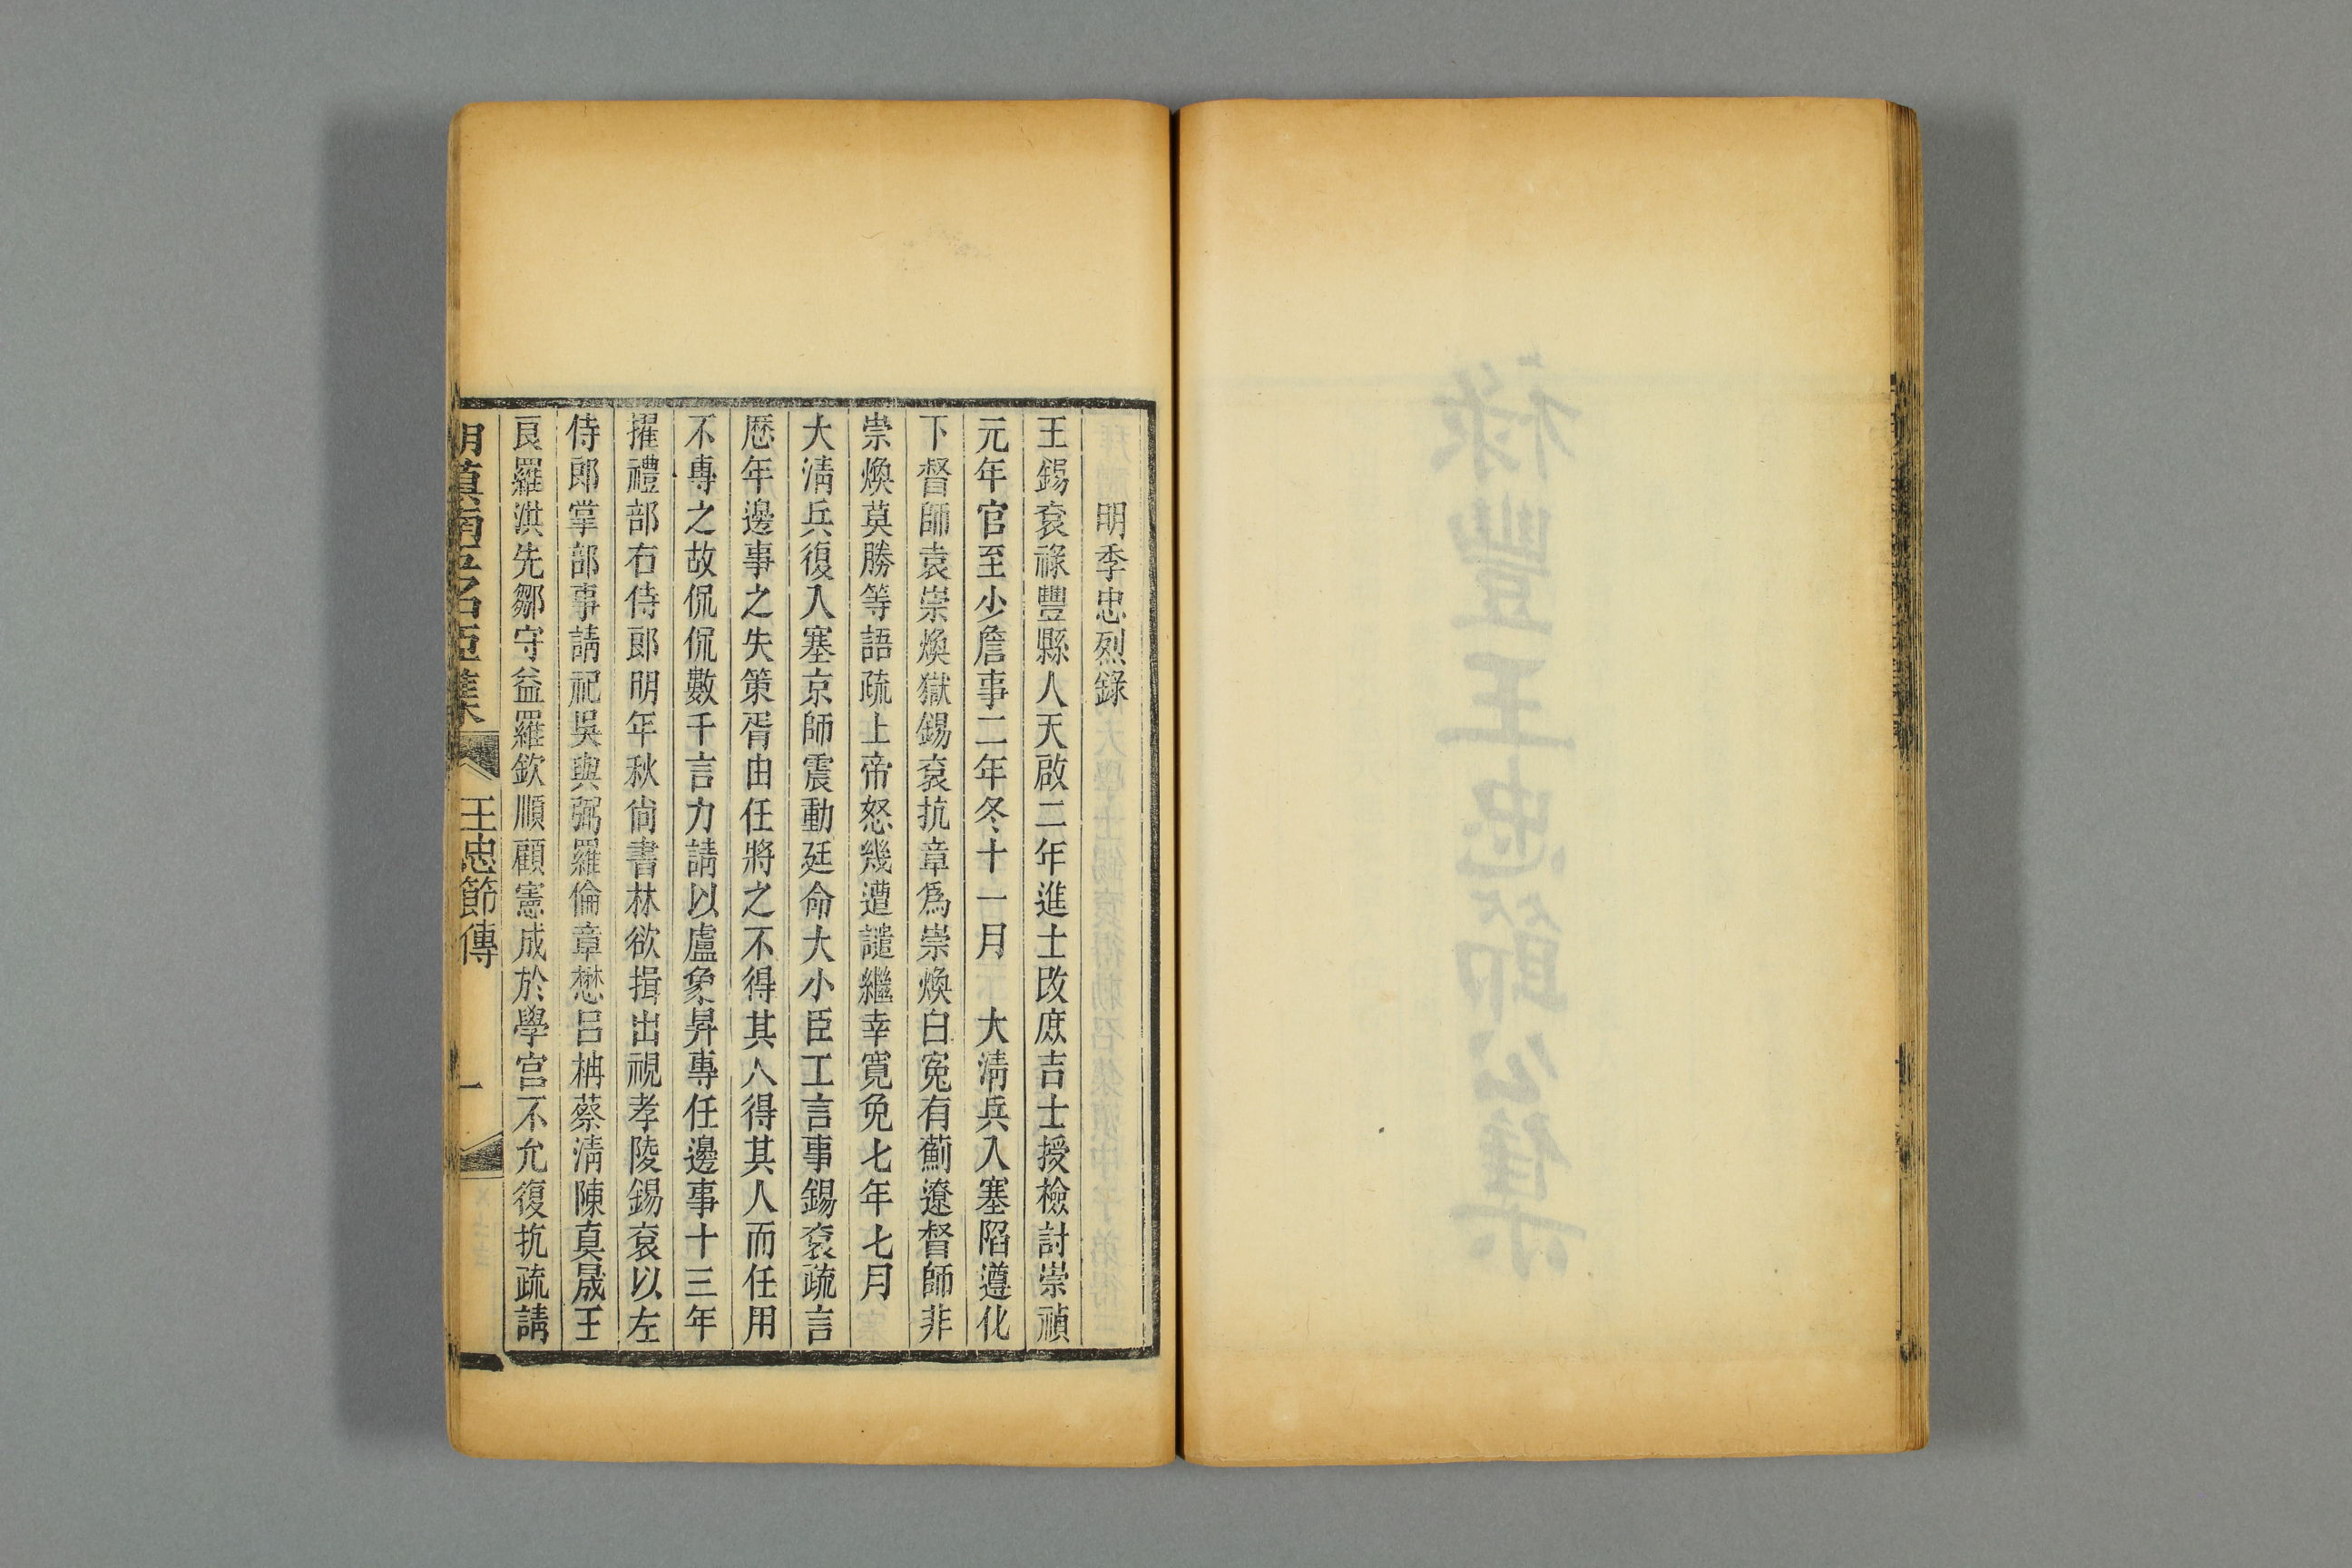 祿豐王忠節公集
明季忠烈錄
王錫袞祿豐縣人天啟二年進士改庶吉士授檢討崇禎
元年官至少詹事二年冬十一月　大淸兵入塞陷遵化
下督師袁崇煥獄錫袞抗章爲崇煥白寃有薊遼督師非
崇煥莫勝等語疏上帝怒幾遭譴繼幸寛免七年七月
大淸兵復入塞京師震動廷命大小臣工言事錫袞疏言
歷年邊事之失策胥由任將之不得其人得其人而任用
不專之故侃侃數千言力請以盧象昇專任邊事十三年
擢禮部右侍郎明年秋尙書林欲揖出視孝陵錫袞以左
侍郎掌部事請祀吳與弼羅倫章懋呂柟蔡淸陳真晟王
艮羅洪先鄒守益羅欽順顧憲成於學宮不允復抗疏請
明滇南五名臣集
王忠節傳
一